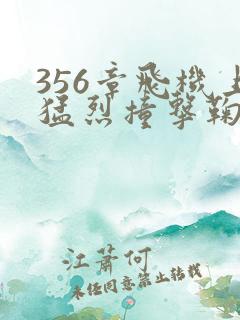 356章飛機上
猛烈撞擊鞠
江蕭何
未经同意禁止转载